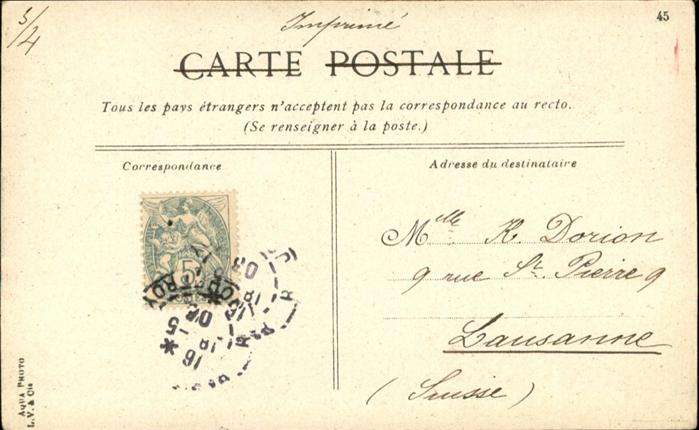 5/4
Imprimé
45
CARTE POSTALE
Tous les pays étrangers n'acceptent pas la correspondance au recto.
(Se renseigner à la poste.)
Correspondance
Adresse du destinataire
5
Melle R. Dorion
9 rue St. Pierre 9
Lausanne
(Suisse)
AQUA PHOTO
L.V. & Cie